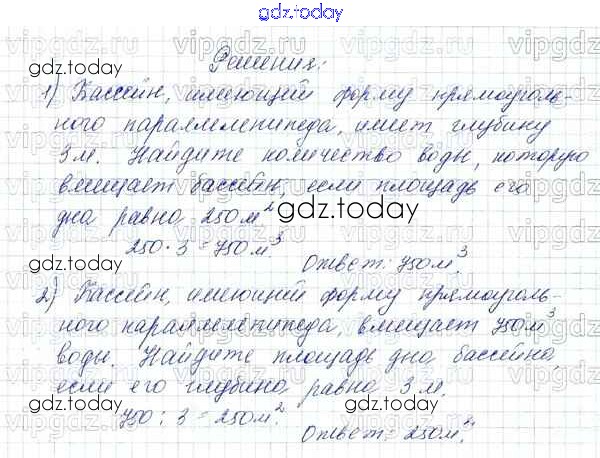 gdz.today
Решения:
1) Бассейн, имеющий форму прямоуголь-
ного параллелепипеда, имеет глубину
3 м. Найдите количество воды, которую
вмещает бассейн, если площадь его
дна равна 250 м²
gdz.today
250 · 3 = 750 м³
Ответ: 750 м³.
2) Бассейн, имеющий форму прямоуголь-
ного параллелепипеда, вмещает 750 м³
воды. Найдите площадь дна бассейна,
если его глубина равна 3 м.
750 : 3 = 250 м².
Ответ: 250 м².